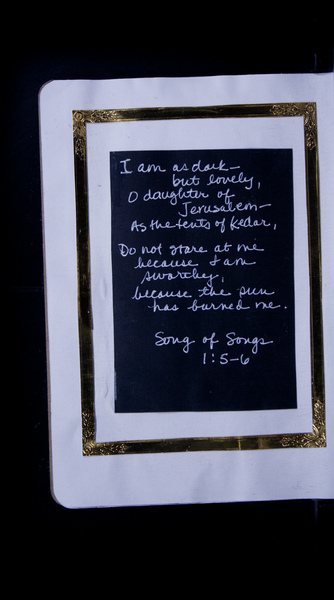 I am as dark—
but lovely,
O daughter of
Jerusalem—
As the tents of Kedar,
Do not stare at me
because I am
swarthy,
because the sun
has burned me.
Song of Songs
1:5-6